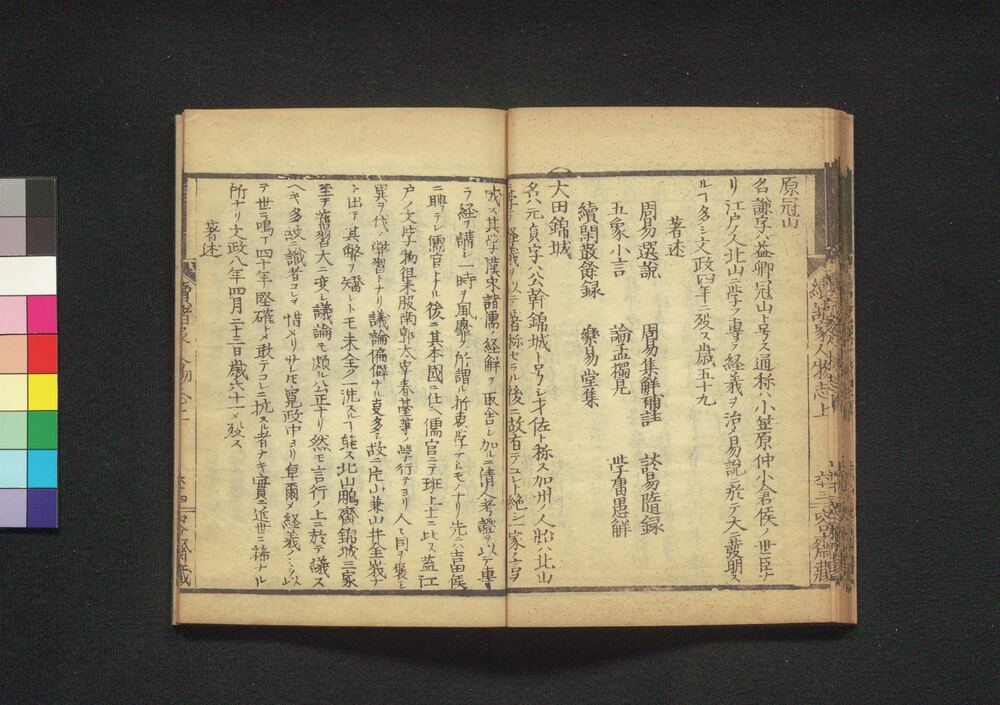 原冠山
名ハ謙字ハ益卿冠山ト号ス通称ハ小笠原仲小倉侯ノ世臣ナ
リ江戸ノ人北山ニ学フ専ラ経義ヲ治メ易説ニ於テ大ニ發明ス
ルヿ多シ文政四年ニ殁ス歳五十九
著述
周易選説 周易集解補註 読易隨録
五象小言 論孟獨見 学庸愚解
續閑散餘録 樂易堂集
大田錦城
名ハ元貞字ハ公幹錦城ト号シ才佐ト称ス加州ノ人始ハ北山
ニ学テ経義ヲ以テ著称セラル後ニ故有テコレト絶シ一家ノ言ヲ
成ス其学漢宋諸儒ノ経解ヲ取舎シ加ルニ清人考證ヲ以テ専
ラ経ヲ講シ一時ヲ風靡ス所謂ル折衷学ナルモノナリ先ニ吉田侯
ニ聘ラレ儒官トナル後ニ其本國ニ仕ヘ儒官ニテ班上士ニ比ス蓋江
戸ノ文学物徂徠服南郭太宰春䑓等ノ学行テヨリ人ト同ヲ褒シ
異ヲ伐ノ弊習トナリ議論偏僻ナル㕝多シ故ニ片山兼山井金峩ナ
ト出テ其弊ヲ矯レトモ未全ク一洗スルヿ能ス北山鵬齋錦城三家
至テ舊習大ニ変シ議論モ頗ル公正ナリ然モ言行ノ上ニ於テ議ス
ヘキ多故ニ識者コレヲ惜メリサレモ寛政中ヨリ卓爾メ経義ノ
テ世ニ鳴ヿ四十年堅確トメ敢テコレニ抗スル者ナキ實ニ近世ニ稀ナル
所ナリ文政八年四月二十三日歳六十一メ殁ス
著述
續諸家人物志上